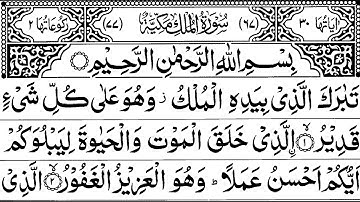 اٰیاتها ٣٠ (٦٧) سُوْرَةُ الْمُلْكِ مَكِّیَّةٌ (٧٧) رکوعاتها ٢
بِسْمِ اللّٰهِ الرَّحْمٰنِ الرَّحِیْمِ
تَبٰرَكَ الَّذِیْ بِیَدِهِ الْمُلْكُ ز وَهُوَ عَلٰی كُلِّ شَیْءٍ
قَدِیْرُ ۙ﴿١﴾ اِلَّذِیْ خَلَقَ الْمَوْتَ وَالْحَیٰوةَ لِیَبْلُوَكُمْ
اَیُّكُمْ اَحْسَنُ عَمَلًا ؕ وَهُوَ الْعَزِیْزُ الْغَفُوْرُ ۙ﴿٢﴾ الَّذِیْ